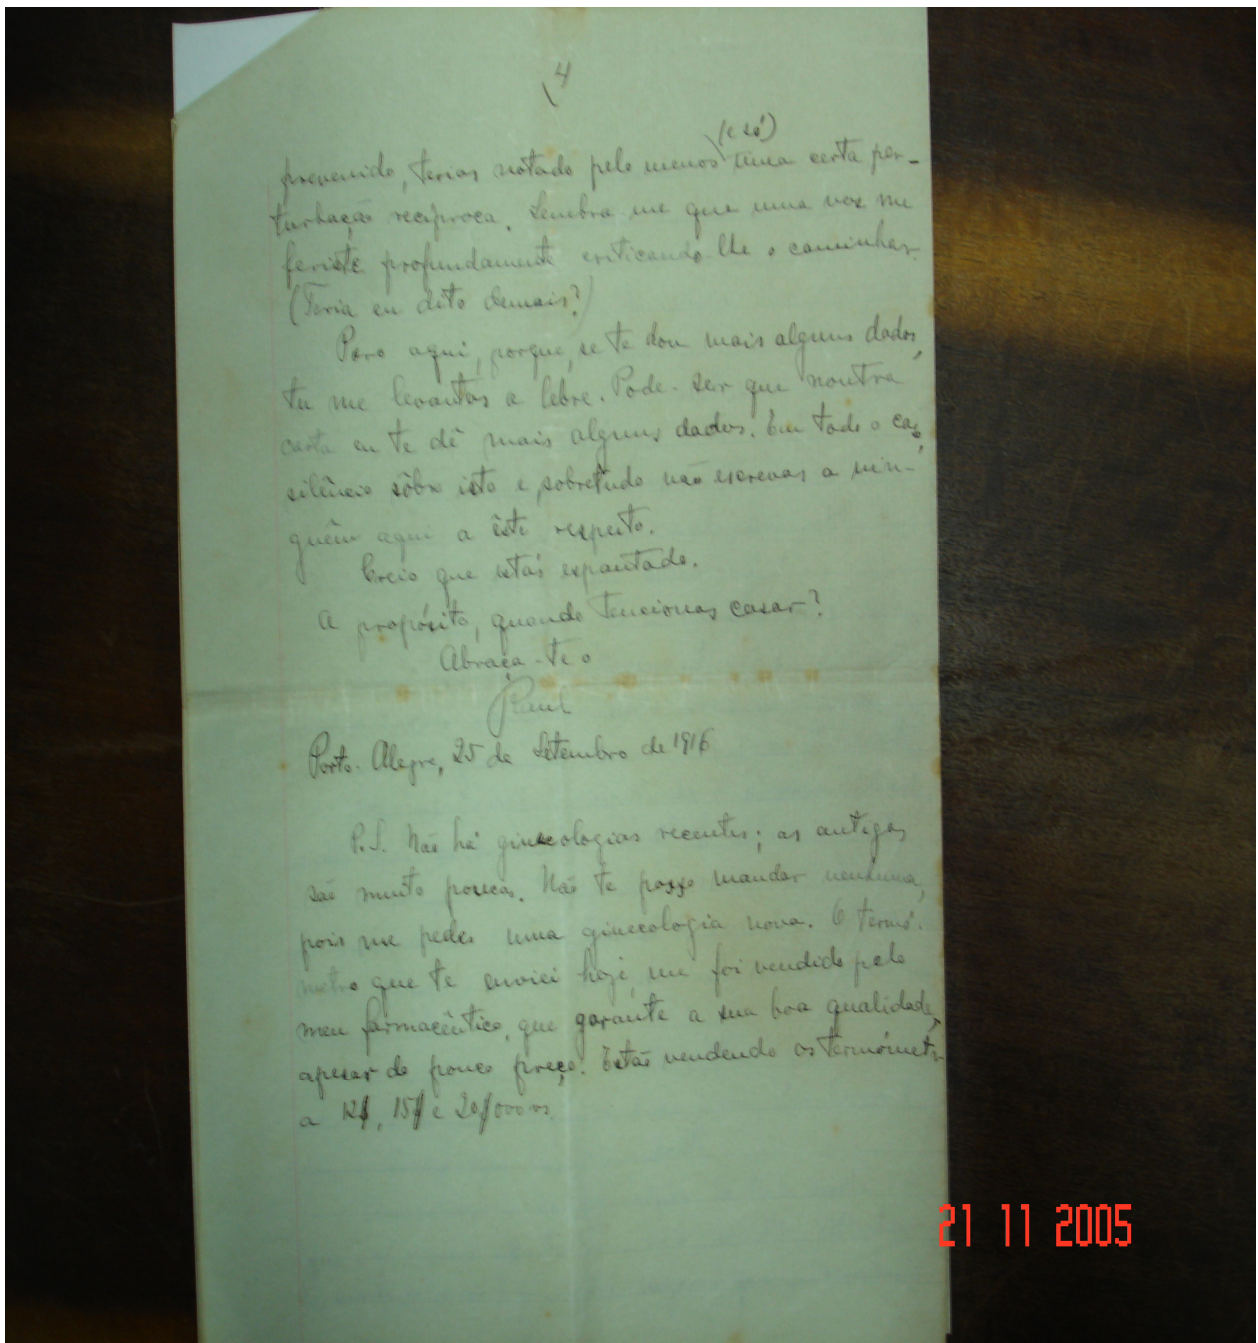 4
(e só)
prevenido, terias notado pelo menos uma certa per-
turbação recíproca. Lembra-me que uma vez me
feriste profundamente criticando-lhe o caminhar.
(Teria eu dito demais?)
Paro aqui, porque, se te dou mais alguns dados,
tu me levantas a lebre. Pode-ser que noutra
carta eu te dê mais alguns dados. Em todo o caso,
silêncio sôbre isto e, sobretudo não escrevas a nin-
guêm aqui a êste respeito.
Creio que estás espantado.
A propósito, quando tencionas casar?
Abraça-te o
Raul
Porto-Alegre, 25 de Setembro de 1916
P.S. Não há ginecologias recentes; as antigas
são muito poucas. Não te posso mandar nenhuma,
pois me pedes uma ginecologia nova. O termó-
metro que te enviei hoje, me foi vendido pelo
meu farmacêutico, que garante a sua boa qualidade,
apesar do pouco preço. Estão vendendo os termómetros
a 12$, 15$ e 20$000 rs.
21 11 2005